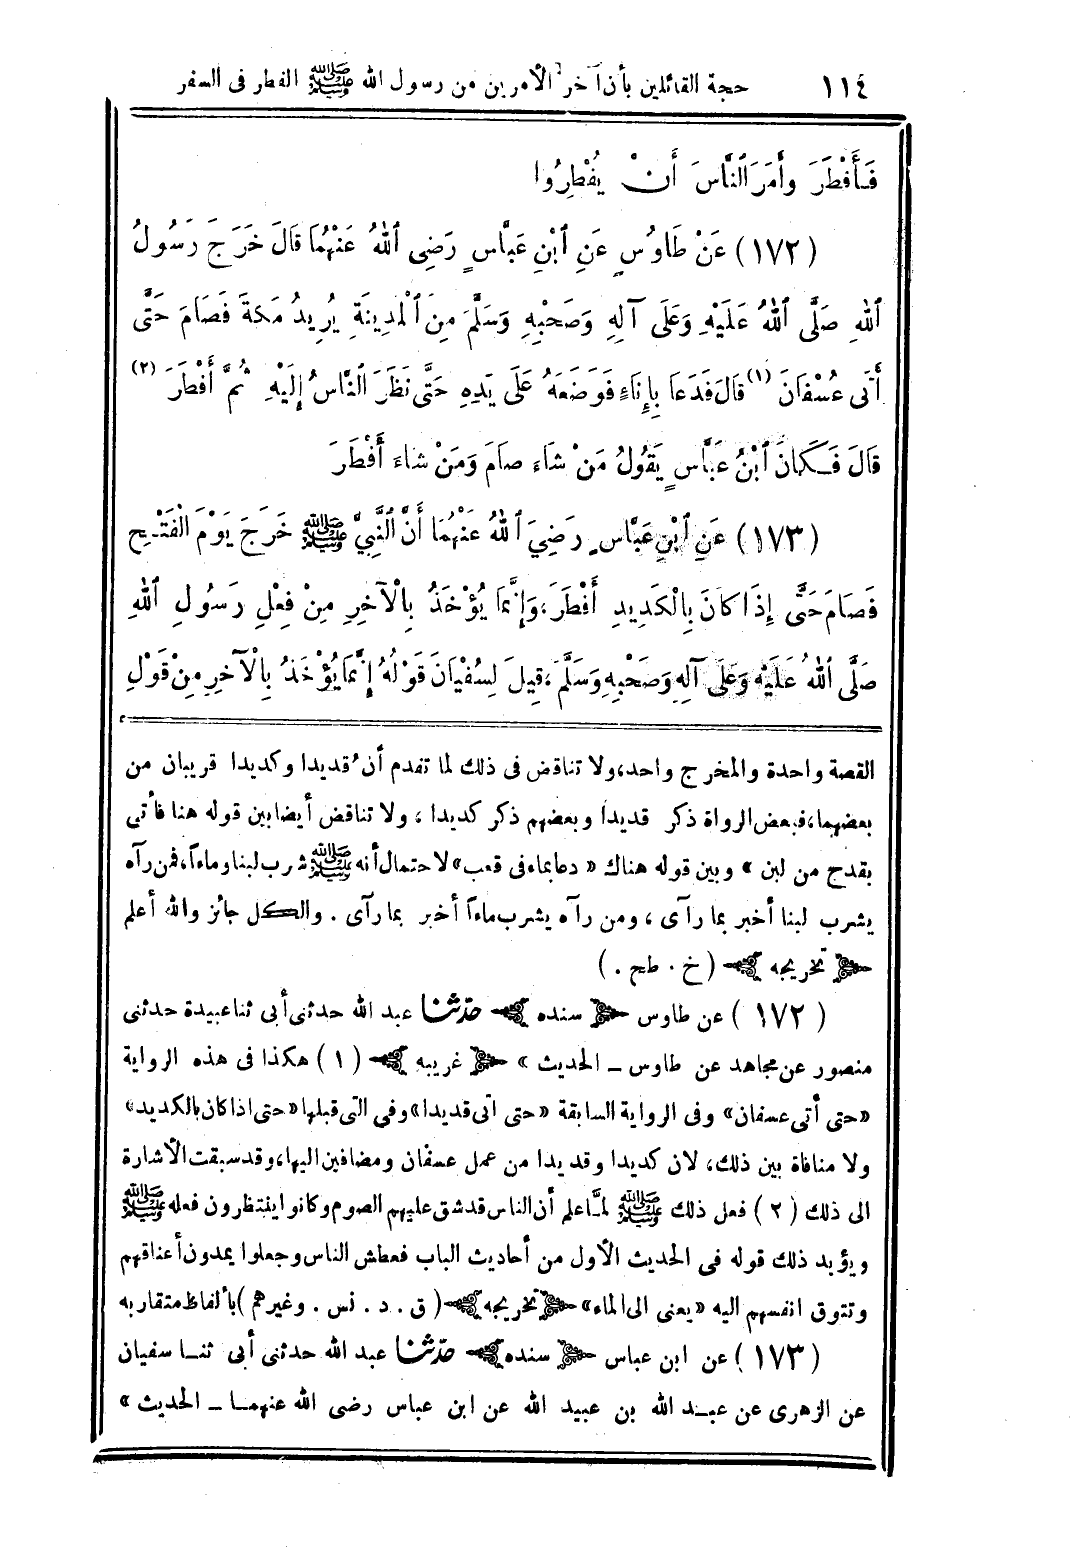 ١١٤ حجة القائلين بأن آخر الأمرين من رسول الله ﷺ الفطر فى السفر
فَأَفْطَرَ وأَمَرَ النَّاسَ أَنْ يُفْطِرُوا
(١٧٢) عَنْ طَاوُسٍ عَنِ ابْنِ عَبَّاسٍ رَضِيَ اللهُ عَنْهُمَا قَالَ خَرَجَ رَسُولُ
اللهِ صَلَّى اللهُ عَلَيْهِ وَعَلَى آلِهِ وَصَحْبِهِ وَسَلَّمَ مِنَ الْمَدِينَةِ يُرِيدُ مَكَةَ فَصَامَ حَتَّى
أَتَى عُسْفَانَ (١) قَالَ فَدَعَا بِإِنَاءٍ فَوَضَعَهُ عَلَى يَدِهِ حَتَّى نَظَرَ النَّاسُ إِلَيْهِ ثُمَّ أَفْطَرَ (٢)
قَالَ فَكَانَ ابْنُ عَبَّاسٍ يَقُولُ مَنْ شَاءَ صَامَ وَمَنْ شَاءَ أَفْطَرَ
(١٧٣) عَنِ ابْنِ عَبَّاسٍ رَضِيَ اللهُ عَنْهُمَا أَنَّ النَّبِيَّ ﷺ خَرَجَ يَوْمَ الْفَتْحِ
فَصَامَ حَتَّى إِذَا كَانَ بِالْكَدِيدِ أَفْطَرَ، وَإِنَّمَا يُؤْخَذُ بِالْآخِرِ مِنْ فِعْلِ رَسُولِ اللهِ
صَلَّى اللهُ عَلَيْهِ وَعَلَى آلِهِ وَصَحْبِهِ وَسَلَّمَ، قِيلَ لِسُفْيَانَ قَوْلُهُ إِنَّمَا يُؤْخَذُ بِالْآخِرِ مِنْ قَوْلِ
القصة واحدة والمخرج واحد، ولا تناقض فى ذلك لما تقدم أن قديدا وكديدا قريبان من
بعضهما، فبعض الرواة ذكر قديدا وبعضهم ذكر كديدا ، ولا تناقض أيضا بين قوله هنا فأتى
بقدح من لبن » وبين قوله هناك « دعا بماء فى قعب» لاحتمال أنه ﷺ شرب لبنا وماءًا، فمن رآه
يشرب لبنا أخبر بما رآى ، ومن رآه يشرب ماءًا أخبر بما رآى . والكل جائز والله أعلم
﴿ تخريجه ﴾ ( خ . طح . )
( ١٧٢ ) عن طاوس ﴿ سنده ﴾ حدّثنا عبد الله حدثنى أبى ثنا عبيدة حدثنى
منصور عن مجاهد عن طاوس ــ الحديث » ﴿ غريبه ﴾ ( ١ ) هكذا فى هذه الرواية
«حتى أتى عسفان» وفى الرواية السابقة «حتى اتى قديدا» وفى التى قبلها «حتى اذا كان بالكديد»
ولا منافاة بين ذلك، لان كديدا وقديدا من عمل عسفان ومضافين اليها، وقد سبقت الأشارة
الى ذلك ( ٢ ) فعل ذلك ﷺ لمَّا علم أن الناس قد شق عليهم الصوم وكانوا ينتظرون فعله ﷺ
ويؤيد ذلك قوله فى الحديث الأول من أحاديث الباب فعطش الناس وجعلوا يمدون أعناقهم
وتتوق انفسهم اليه «يعنى الى الماء» ﴿ تخريجه ﴾ ( ق . د . نس . وغيرهم ) بألفاظ متقاربه
( ١٧٣ ) عن ابن عباس ﴿ سنده ﴾ حدّثنا عبد الله حدثنى أبى ثنا سفيان
عن الزهرى عن عبد الله بن عبيد الله عن ابن عباس رضى الله عنهما ــ الحديث »